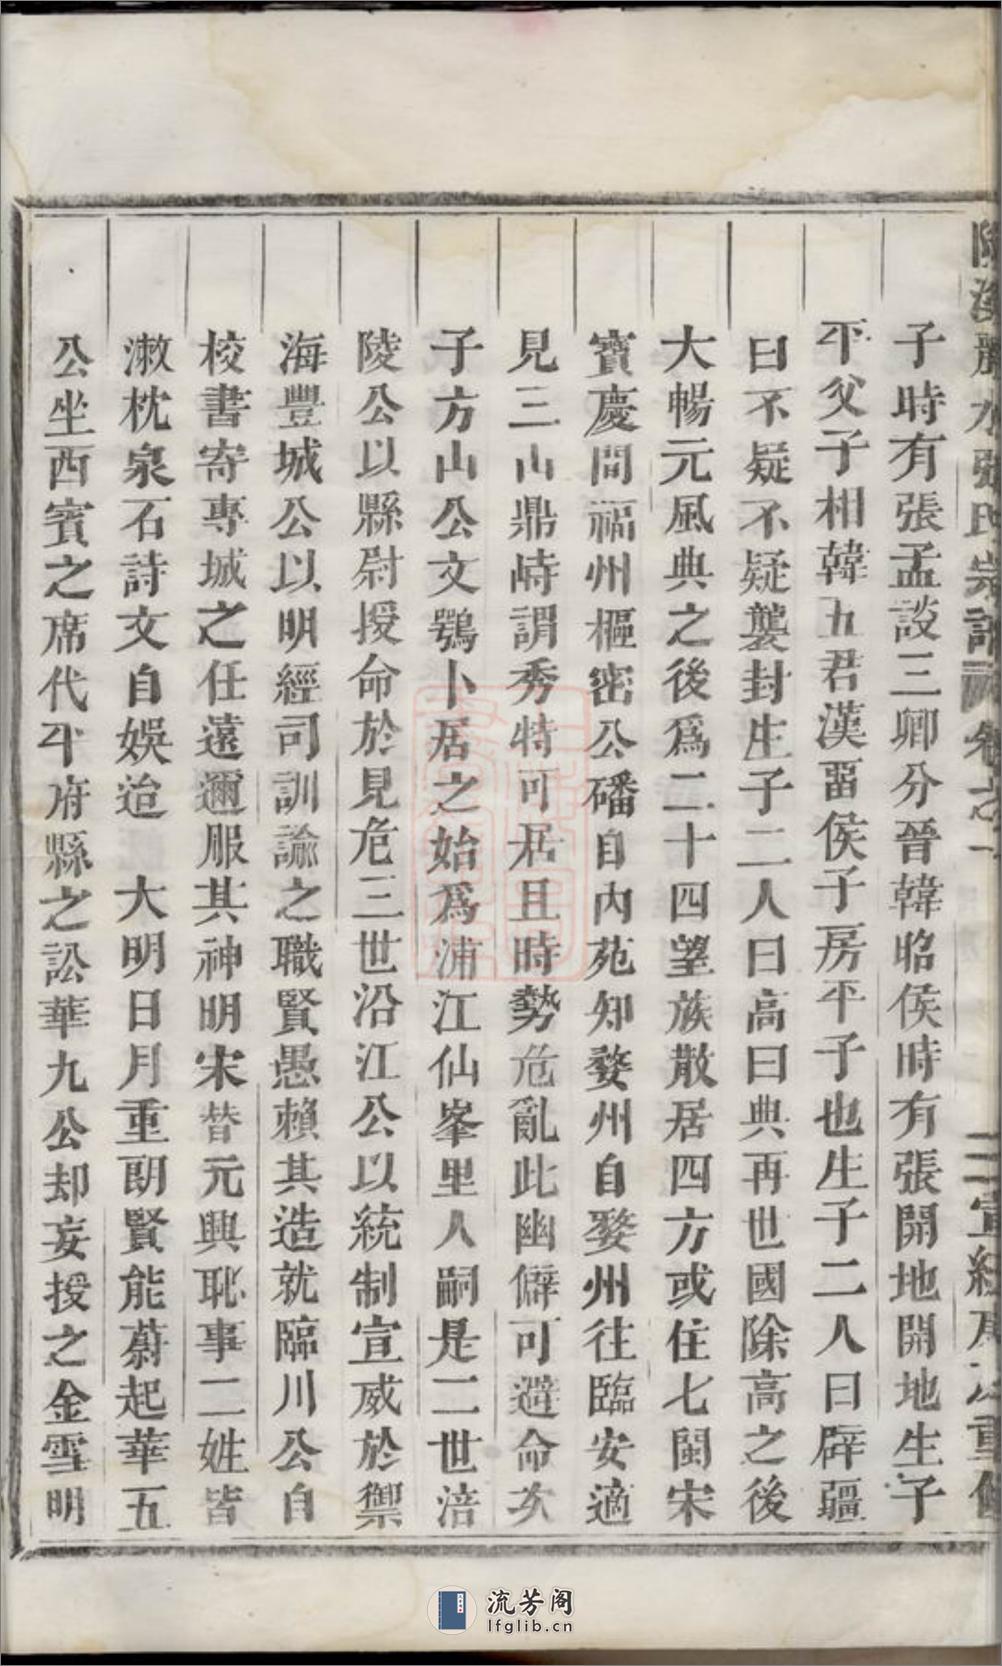 子時有張孟談三卿分晉韓昭侯時有張開地開地生子
平父子相韓五君漢畱侯子房平子也生子二人曰辟疆
曰不疑不疑襲封生子二人曰高曰典再世國除高之後
大暢元風典之後爲二十四望族散居四方或住七閩宋
寶慶間福州樞密公磻自內苑知婺州自婺州往臨安適
見三山鼎峙謂秀特可居且時勢危亂此幽僻可避命次
子方山公文鶚卜居之始爲浦江仙峯里人嗣是二世涪
陵公以縣尉授命於見危三世沿江公以統制宣威於禦
海豐城公以明經司訓諭之職賢愚賴其造就臨川公自
校書寄專城之任遠邇服其神明宋替元興恥事二姓皆
漱枕泉石詩文自娛迨　大明日月重朗賢能蔚起華五
公坐西賓之席代平府縣之訟華九公却妄授之金雪明
水張氏宗譜 卷之一 二 重修
流芳阁
lfglib.cn